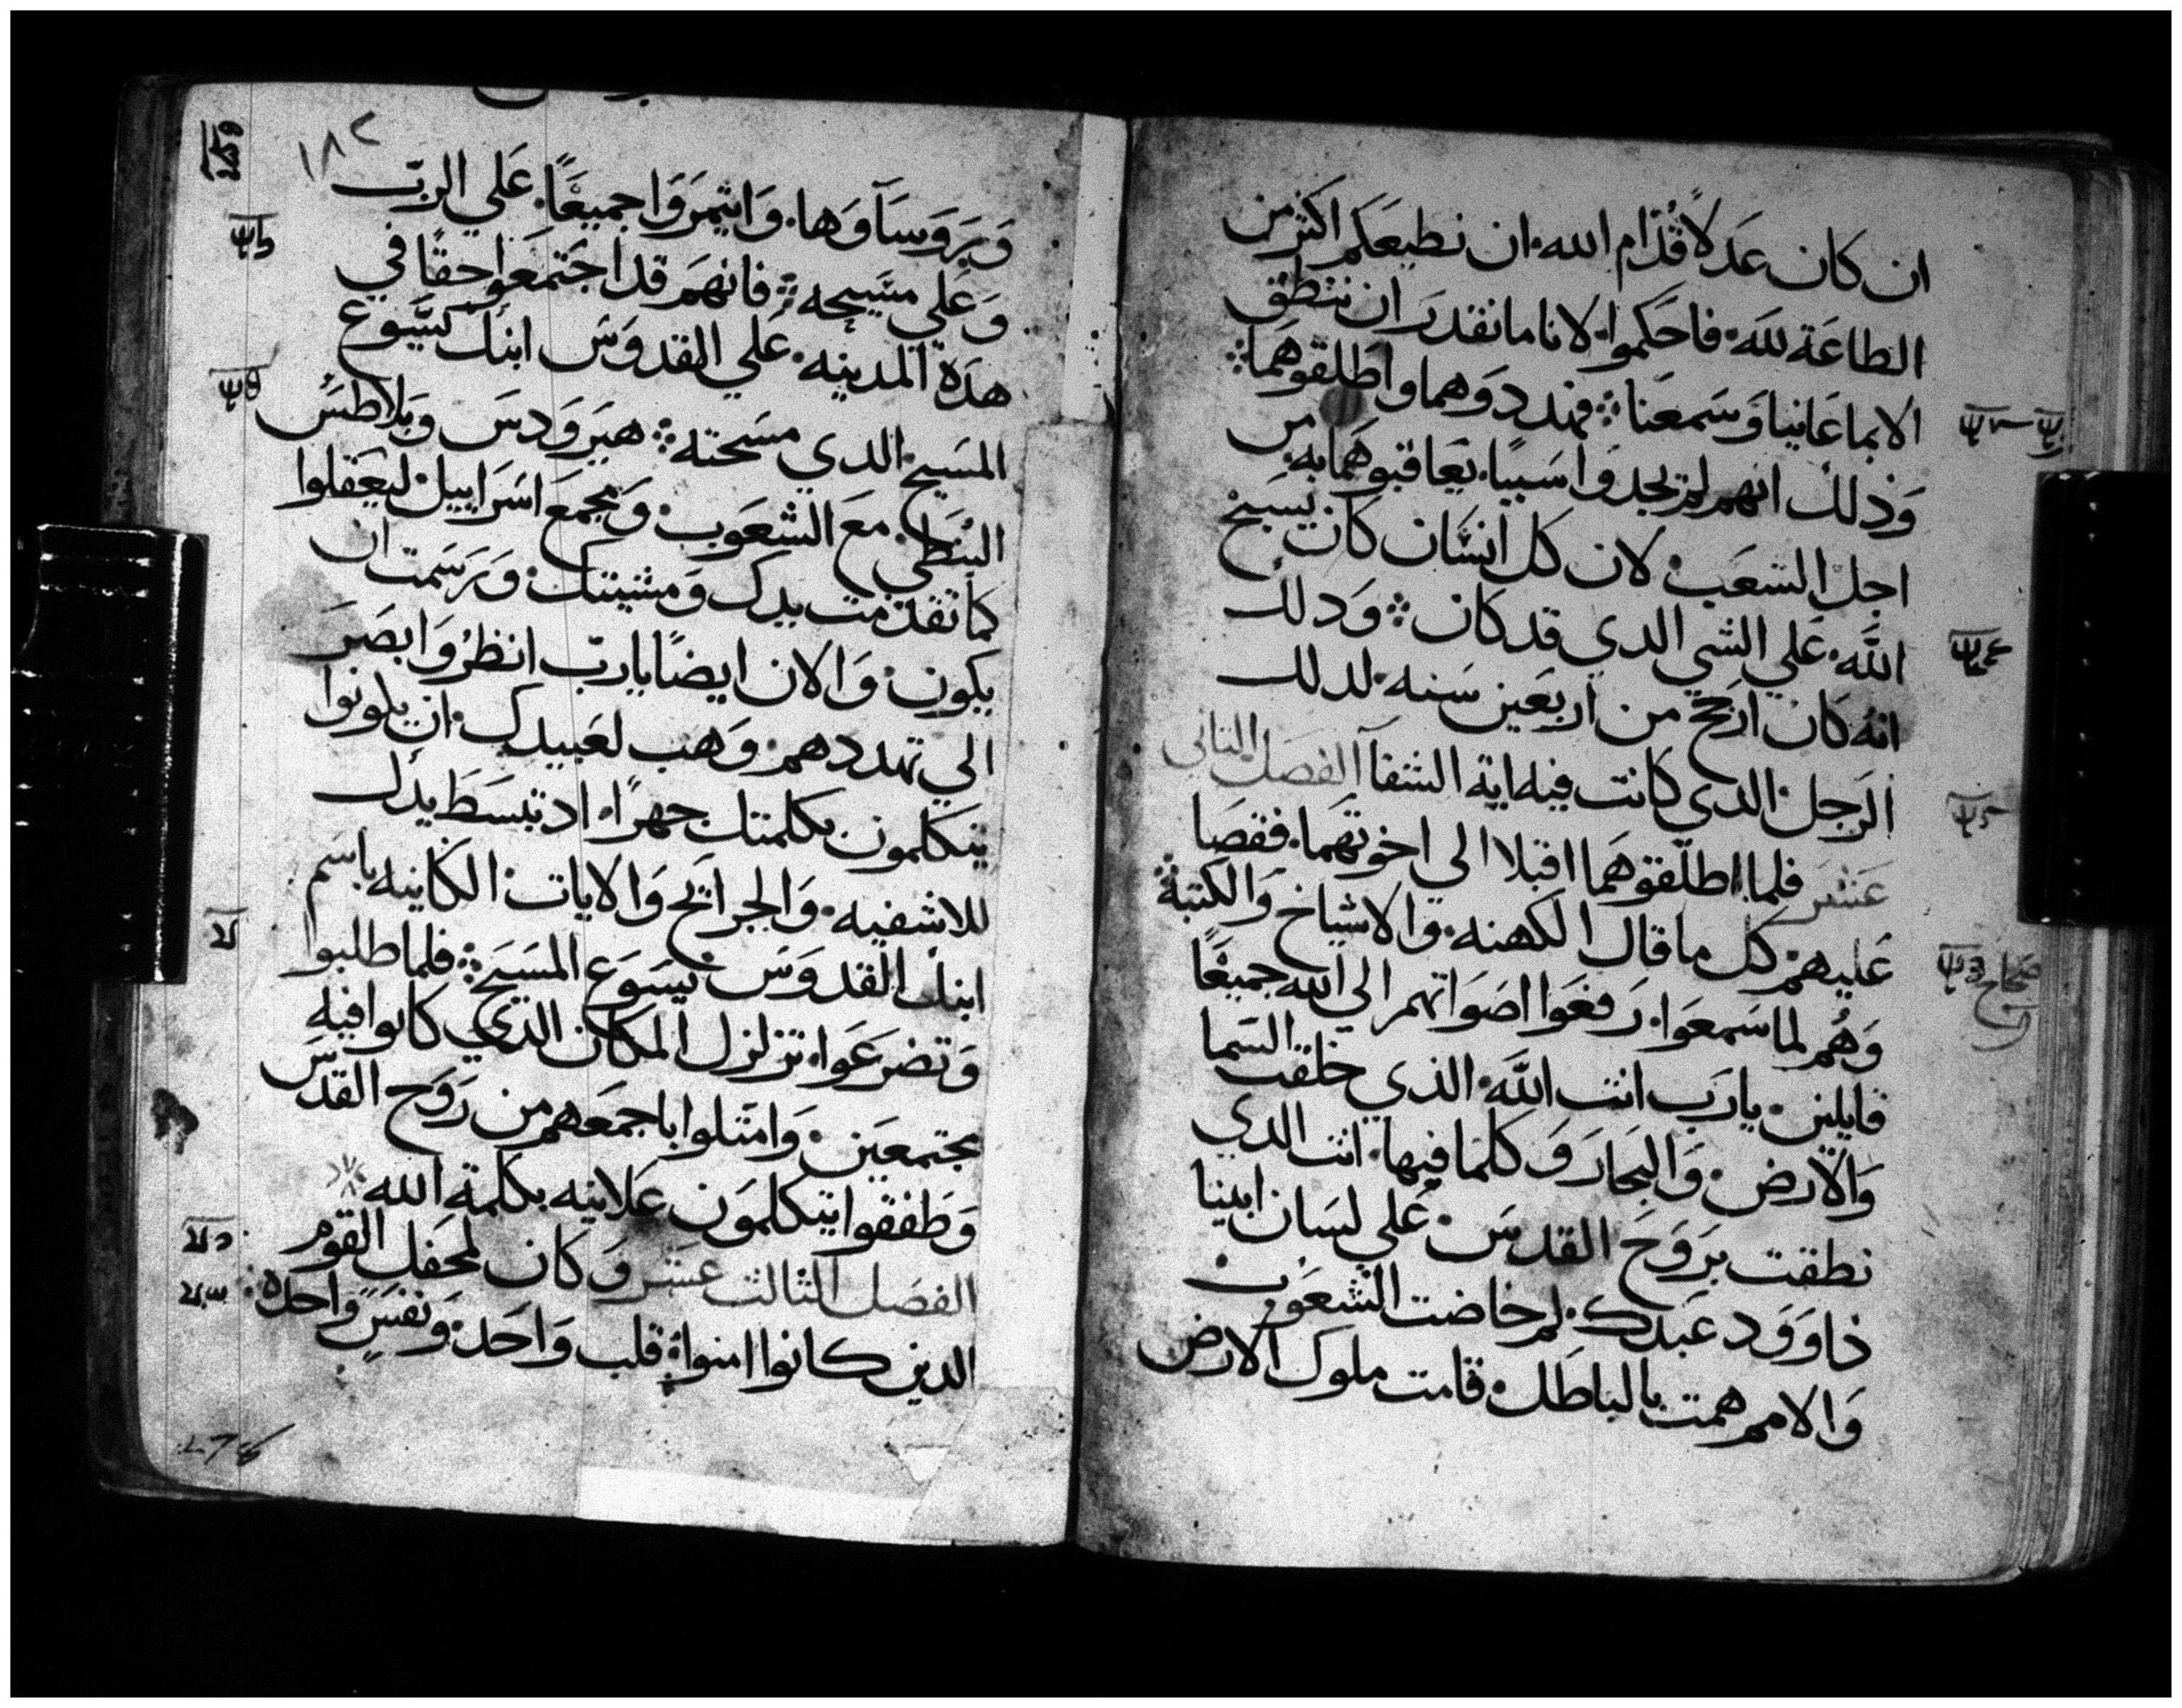 ان كان عَدلاً قُدّام الله ان نطيعكم اكثر من
الطاعَة لله فاحكموا لانا ما نقدر ان ننطق
الا بما عَاينا وَسَمعنا فهددوَهما واطلقوهما
وَذلك انهم لم يجدوَا سَببًا يعَاقبوهَما به من
اجل الشعَب لان كل انسَان كان يسَبح
الله عَلي الشي الدي قد كان وَدلك
انه كان ارجح من اربعَين سَنه لدلك
الرَجل الدي كانت فيه اية الشفآ الفصَل الثاني
عَشر فلما اطلقوهَما اقبلا الي اخوتهَما فقصَا
عَليهم كل ما قال الكهنه وَالاشياخ وَالكتبة
وَهُم لما سَمعَوا رَفعَوا اصَوَاتهم الي الله جميعًا
قايلين يارَب انت الله الذي خلقت السَما
وَالارض وَالبحَار وَكلما فيها انت الدي
نطقت برَوَحَ القدسَ عَلي لسَان ابينا
داوَوَد عَبدك لم خاضت الشعَوَب
وَالامم همت بالباطل قامت ملوك الارض
١٨٢
وَرَوَسَآوَها وَايتمرَوَا جميعًا عَلي الربّ
وَعَلي مسَيحه فانهم قد اجتمعَوا حقًا في
هدَه المدينه عَلي القدوَسَ ابنك يسَوع
المسَيح الدي مسَحته هيرَوَدسَ وَبلاطسَ
البُنطي مع الشعَوب وَمجمع اسَرَاييل ليعَفلوا
كما تقدمت يدك وَمشيتك وَرَسَمت ان
يكون وَالان ايضًا يارب انظرُ وَابصَرَ
الي تهددهم وَهب لعَبيدك ان يكونوا
يتكلمون بكلمتك جهرًا اد تبسَط يدك
للاشفيه وَالجرايح وَالايات الكاينه باسَم
ابنك القدوَسَ يسَوَع المسَيَح فلما طلبوا
وَتضرعَوا تزلزل المكان الدي كانوا فيه
مجتمعَين وَامتلوا باجمعَهم من رَوَح القدسَ
وَطفقوا يتكلموَن عَلانيه بكلمة الله
الفصَل الثالث عَشر وَكان لمحفل القوم
الدين كانوا امنوا قلب وَاحَد وَنفسَ وَاحده